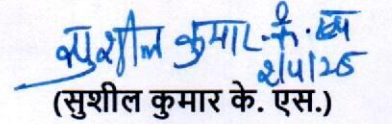 सुशील कुमार के. एस
2/4/25
(सुशील कुमार के. एस.)